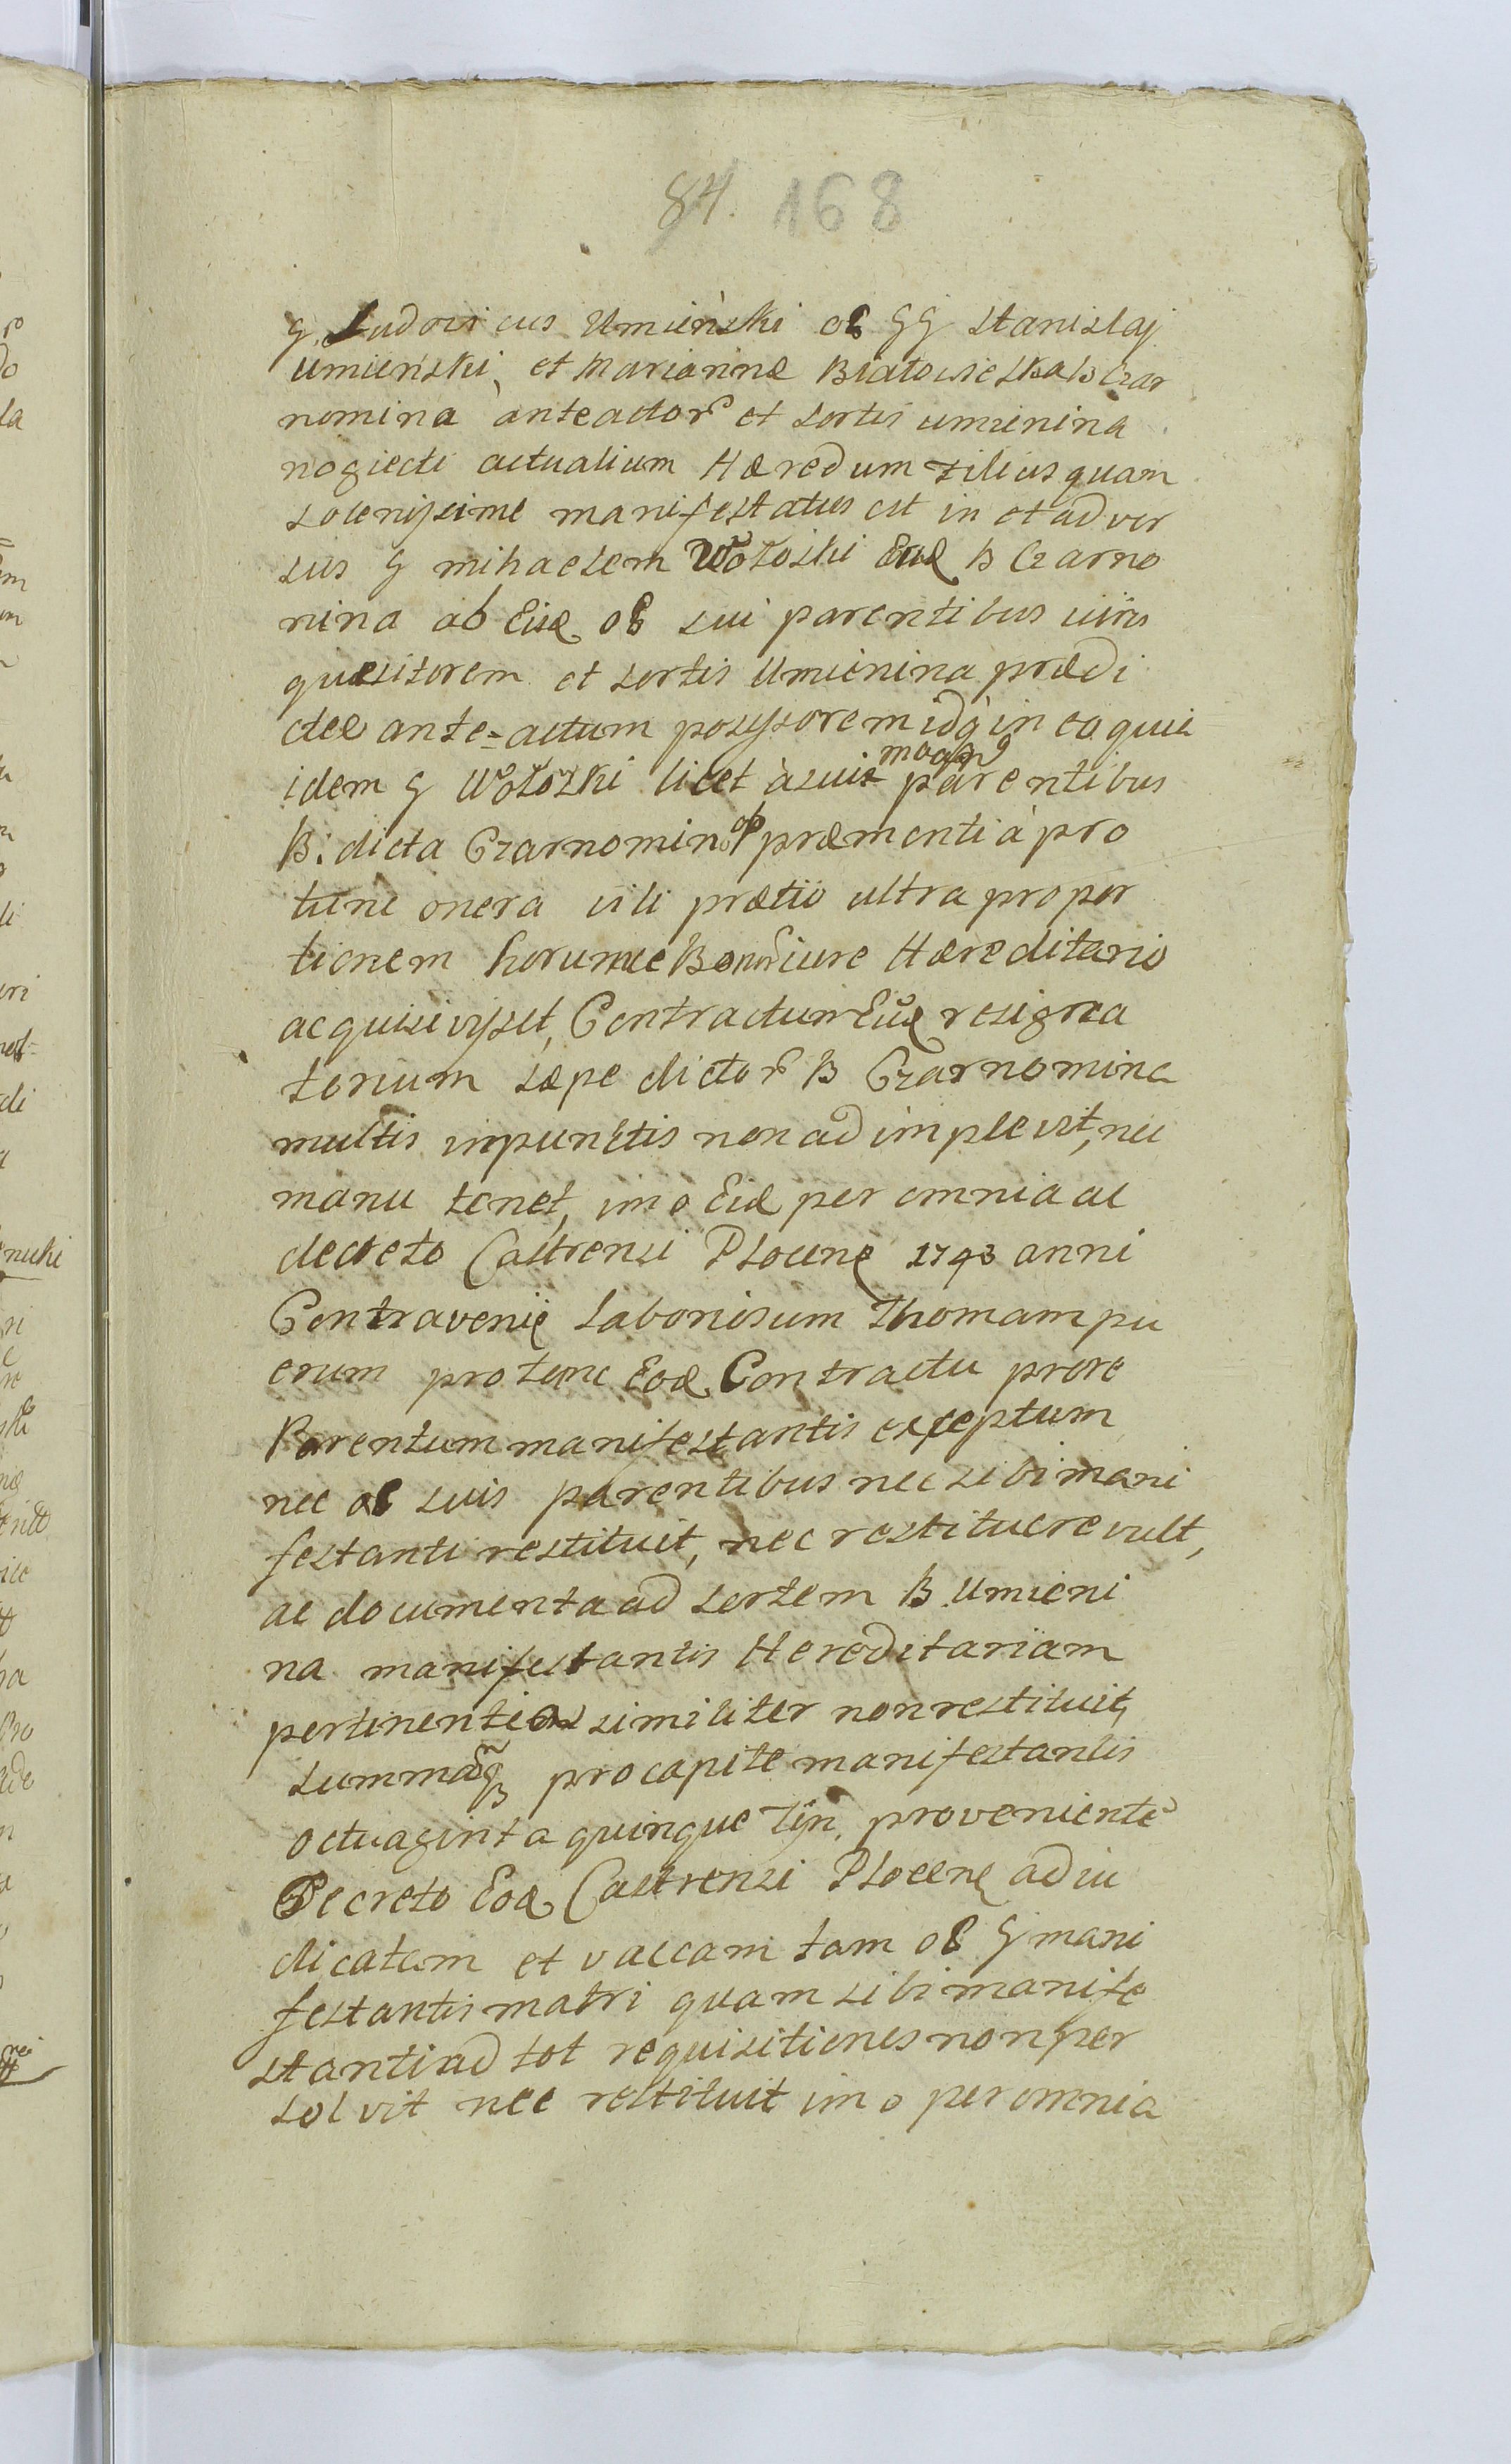 84. 168
G. Ludovicus Umieński ol GG Stanislaj
Umieński, et Mariannæ Białowieska B Czar
nomina anteactor et sortis umienina
nogiecti actualium Hæredum Filius quam
solenissime manifestatus est in et adver
sus G Mihaelem Wołoski Eæd B Czarno
nina ab Eisd ol sui parentibus iuris
quæsitorem et sortis Umienina prædi
ctæ ante=actum possessorem idq in eo quia
idem G Wołoski licet à suis parentibus
B. dicta Czarnomin ob præmenti à pro
tunc onera vili prætio ultra propor
tionem horumce Bonor iure Hæreditario
acquisivisset, Contractum Eud resigna
torium sæpe dictor B Czarnomina
multis inpunctis non adimplevit, nec
manu tenet, imo Eid per omnia ac
decreto Castrensi Plocen 1793 anni
Contravenit Laboriosum Thomam pu
erum protunc Eod Contractu prore
Parentum manifestantis exceptum
nec ol suis parentibus nec sibi mani
festanti restituit, nec restituere vult,
ac documenta ad sortem B Umieni
na manifestantis Hereditariam
pertinentia similiter non restituit,
summāq pro capite manifestantis
octuaginta quinque Tÿn, proveniente
Decreto Eod Castrensi Plocen adiu
dicatam et vaccam tam ol G mani
festantis matri quam sibi manife
stanti ad tot requisitiones non per
solvit nec restituit imo per omnia